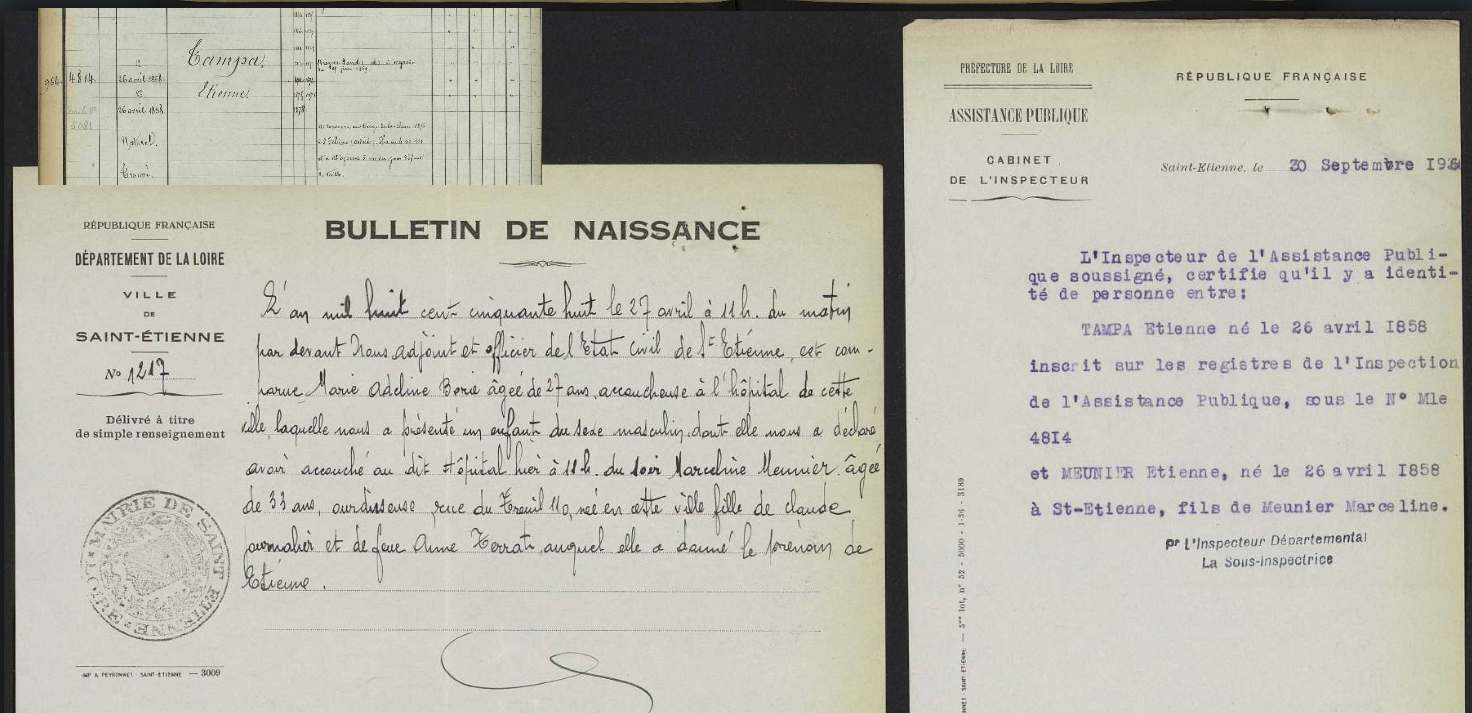 964
4814
26 avril 1858
26 avril 1858
5081
Naturel.
Trouvé.
Tampa,
Etienne
RÉPUBLIQUE FRANÇAISE
DÉPARTEMENT DE LA LOIRE
VILLE
DE
SAINT-ÉTIENNE
No 1217
Délivré à titre
de simple renseignement
MAIRIE DE SAINT ETIENNE
IMP A. PEYRONNET - SAINT-ETIENNE — 3009
BULLETIN DE NAISSANCE
L'an mil huit cent cinquante huit le 27 avril à 11h. du matin
par devant Nous adjoint et officier de l'Etat civil de St Etienne, est com-
parue Marie Adeline Borie âgée de 27 ans, accoucheuse à l'hôpital de cette
ville, laquelle nous a présenté un enfant du sexe masculin, dont elle nous a déclaré
avoir accouché au dit Hôpital hier à 11h. du soir Marceline Meunier âgée
de 33 ans, ourdisseuse, rue du Treuil 110, née en cette ville fille de Claude
journalier et de feue Anne Ferrat, auquel elle a donné le prénom de
Etienne.
PRÉFECTURE DE LA LOIRE
ASSISTANCE PUBLIQUE
CABINET
DE L'INSPECTEUR
RÉPUBLIQUE FRANÇAISE
Saint-Etienne, le 30 Septembre
L'Inspecteur de l'Assistance Publi-
que soussigné, certifie qu'il y a identi-
té de personne entre:
TAMPA Etienne né le 26 avril I858
inscrit sur les registres de l'Inspection
de l'Assistance Publique, sous le N° Mle
48I4
et MEUNIER Etienne, né le 26 avril I858
à St-Etienne, fils de Meunier Marceline.
pr L'Inspecteur Départemental
La Sous-Inspectrice
lot, n° 52 - 5000 - 1-36 - 3189